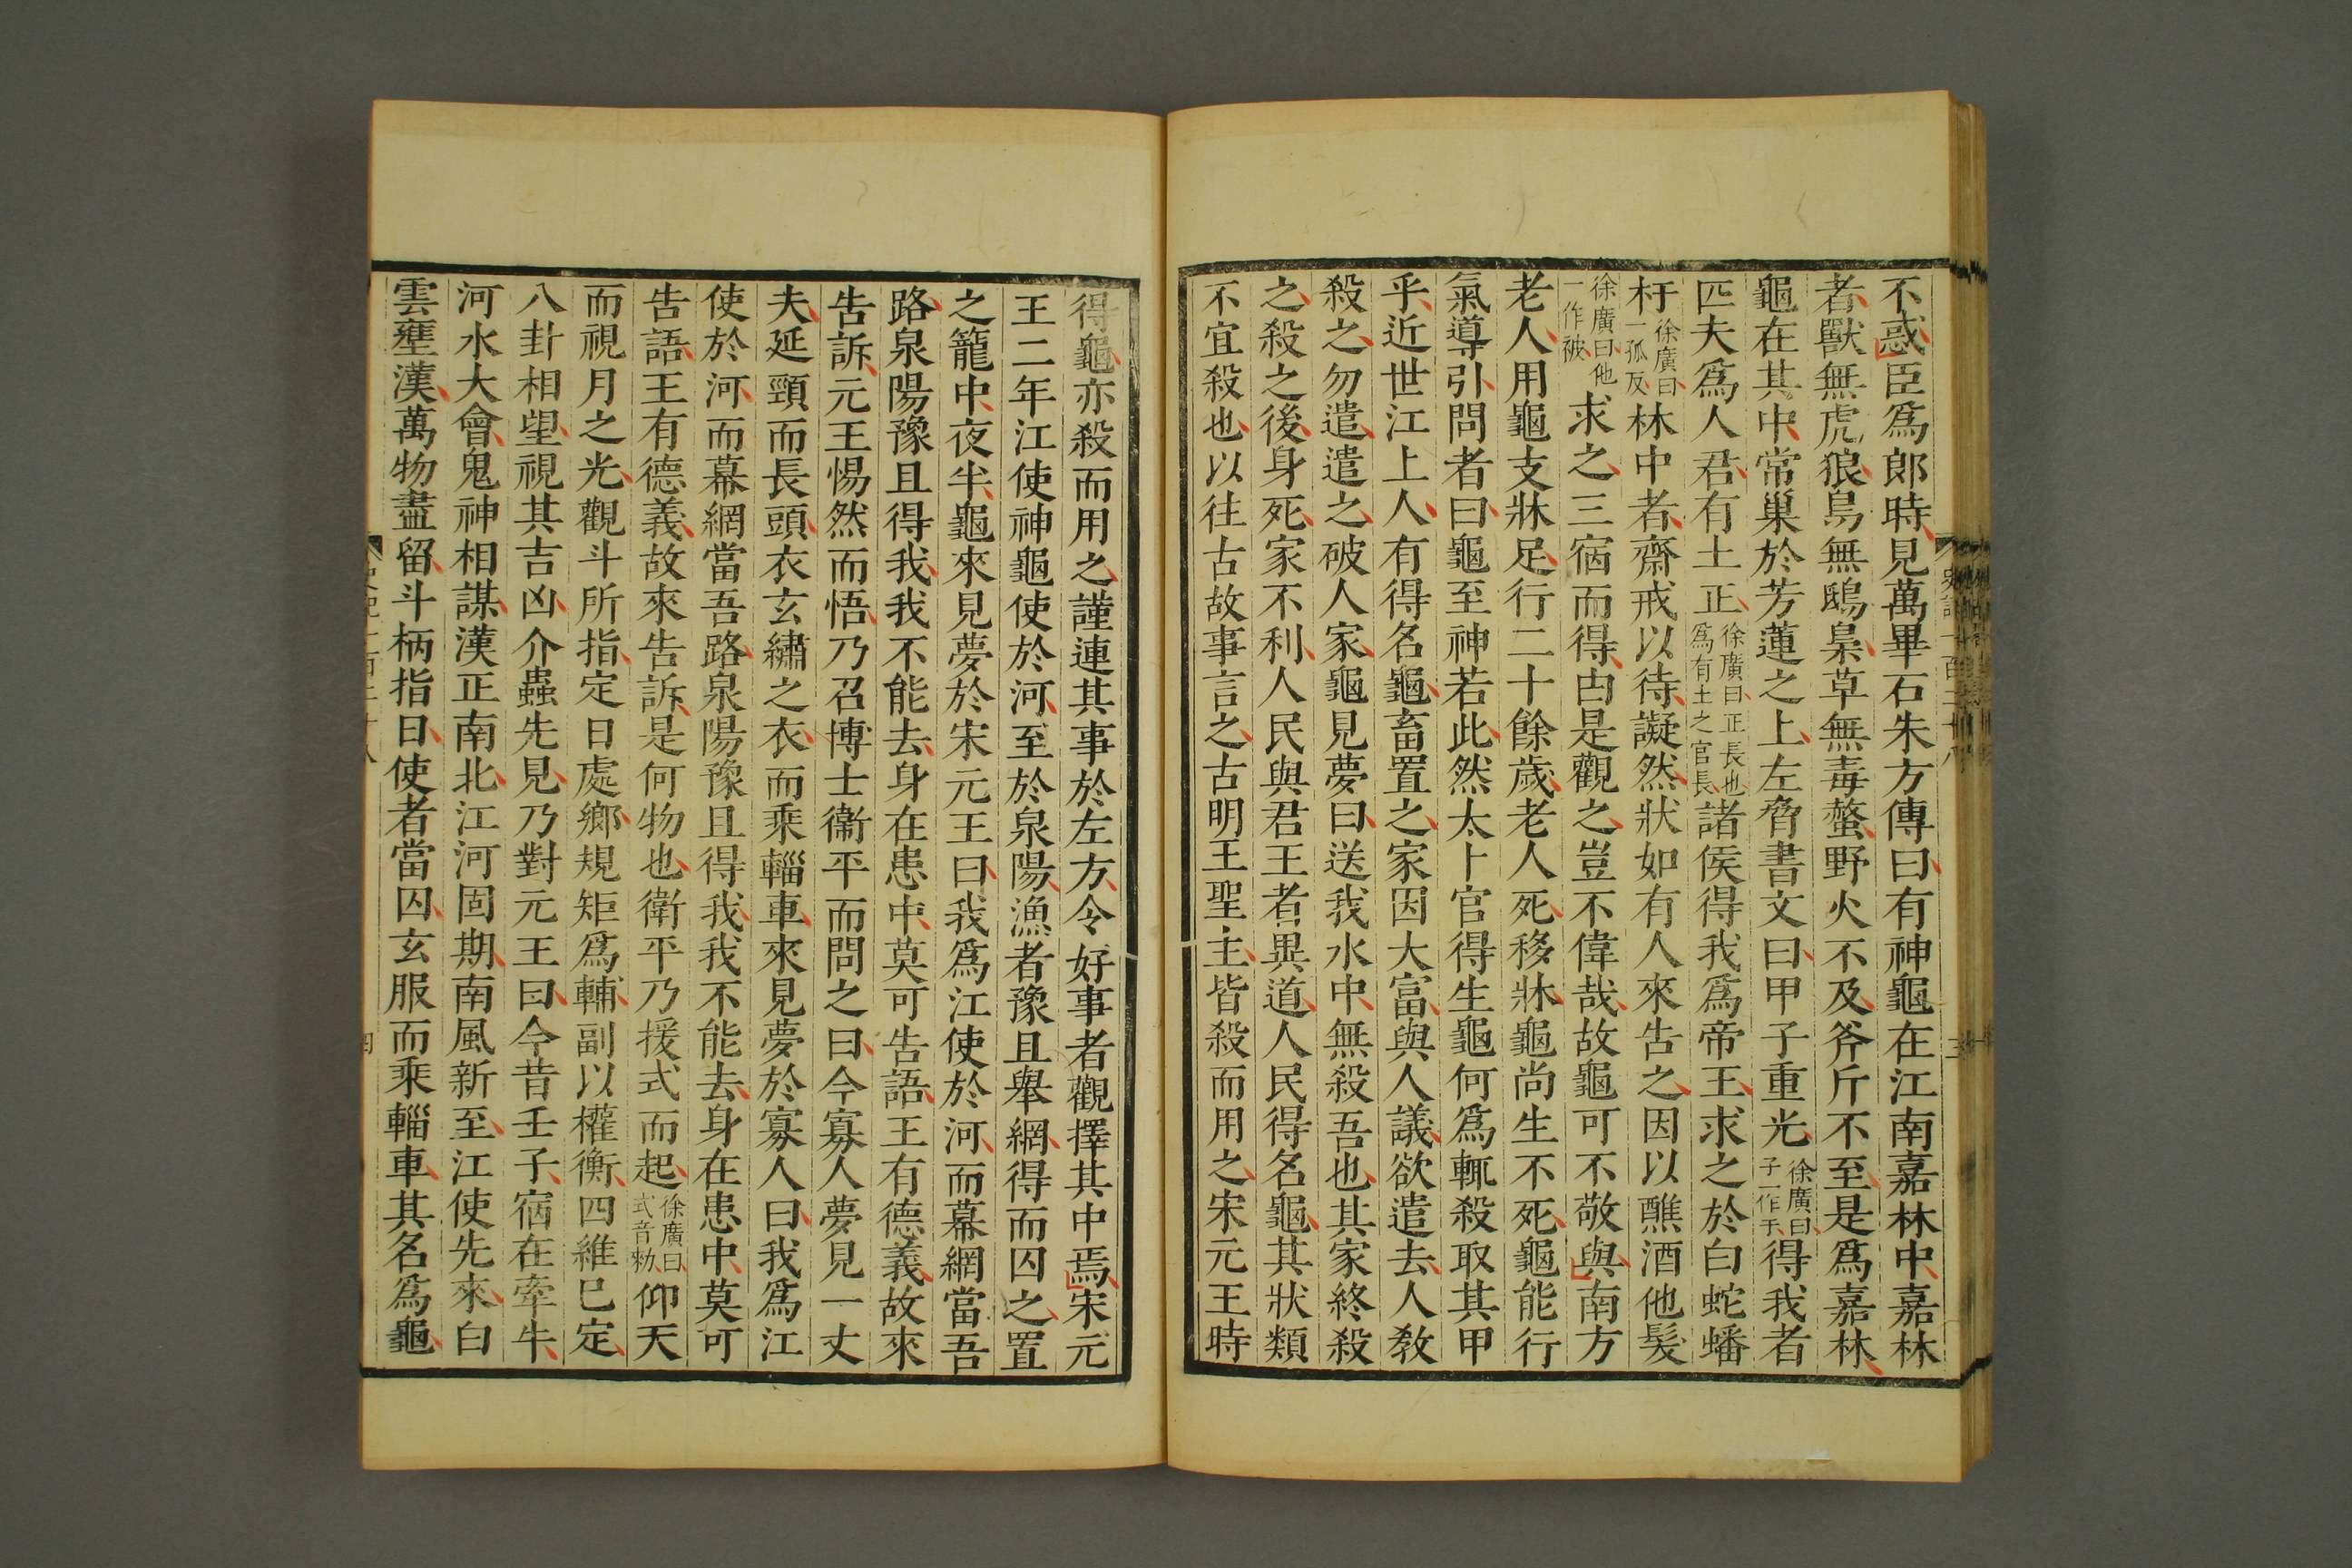 不惑臣爲郎時見萬畢石朱方傳曰有神龜在江南嘉林中嘉林
者獸無虎狼鳥無鴟梟草無毒螫野火不及斧斤不至是爲嘉林
龜在其中常巢於芳蓮之上左脅書文曰甲子重光徐廣曰子一作于得我者
匹夫爲人君有土正徐廣曰正長也爲有土之官長諸侯得我爲帝王求之於白蛇蟠
杅徐廣曰一孤反林中者齋戒以待譺然狀如有人來告之因以醮酒他髮
徐廣曰他一作被求之三宿而得由是觀之豈不偉哉故龜可不敬與南方
老人用龜支牀足行二十餘歲老人死移牀龜尚生不死龜能行
氣導引問者曰龜至神若此然太卜官得生龜何爲輒殺取其甲
乎近世江上人有得名龜畜置之家因大富與人議欲遣去人敎
殺之勿遣遣之破人家龜見夢曰送我水中無殺吾也其家終殺
之殺之後身死家不利人民與君王者異道人民得名龜其狀類
不宜殺也以往古故事言之古明王聖主皆殺而用之宋元王時
得龜亦殺而用之謹連其事於左方令好事者觀擇其中焉宋元
王二年江使神龜使於河至於泉陽漁者豫且舉網得而囚之置
之籠中夜半龜來見夢於宋元王曰我爲江使於河而幕網當吾
路泉陽豫且得我我不能去身在患中莫可告語王有德義故來
告訴元王惕然而悟乃召博士衞平而問之曰今寡人夢見一丈
夫延頸而長頭衣玄繡之衣而乘輜車來見夢於寡人曰我爲江
使於河而幕網當吾路泉陽豫且得我我不能去身在患中莫可
告語王有德義故來告訴是何物也衛平乃援式而起徐廣曰式音勑仰天
而視月之光觀斗所指定日處鄉規矩爲輔副以權衡四維已定
八卦相望視其吉凶介蟲先見乃對元王曰今昔壬子宿在牽牛
河水大會鬼神相謀漢正南北江河固期南風新至江使先來白
雲壅漢萬物盡留斗柄指日使者當囚玄服而乘輜車其名爲龜
史記一百二十八
三